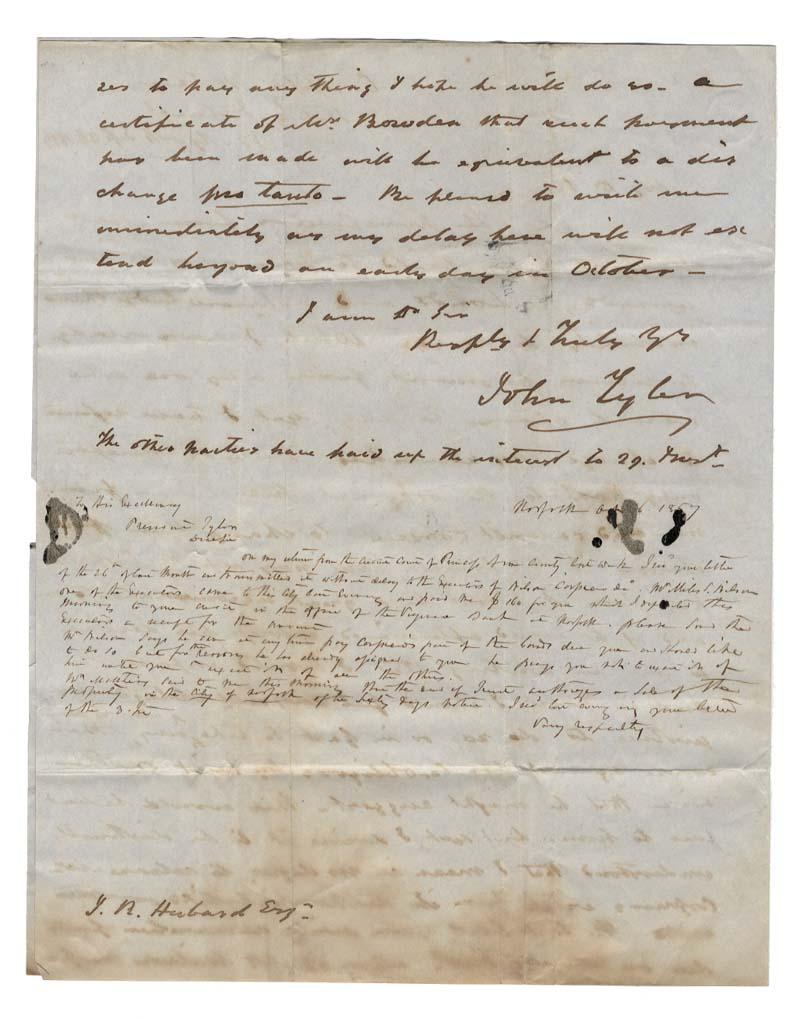 ses to pay any thing I hope he will do so - a
certificate of Mr. Bowden that such payment
has been made will be equivalent to a dis
charge pro tanto - Be pleased to write me
immediately as my delay here will not ex
tend beyond an early day in October -
I am Dr Sir
Resply & Truly Yrs
John Tyler
The other parties have paid up the interest to 29. Inst.
To His Excellency
President Tyler
Norfolk Oct 6 1857
on my return from the Circuit Court of Princess Anne County last week I recd your letter
of the 26th of last Month and transmitted it without delay to the Executors of Wilson Corprew decd. Mr Miles C. Wilson
one of the Executors came to this City last Evening and paid me for you which I deposited this
Morning to your credit in the office of the Virginia Bank at Norfolk. please send the
Executors a receipt for the amount
Mr Wilson says he can at any time pay Corprew's part of the bonds due you and would like
to do so but for the reasons he has already assigned to you he begs you not to
him unless you all the others.
Wm said to me this morning that the deed of Trust authorizes a Sale of the
property in the City of Norfolk after Sixty days notice. I recd last evening your letter
of the 3. Int
Very respectfully
J. R. Hubard Esqr